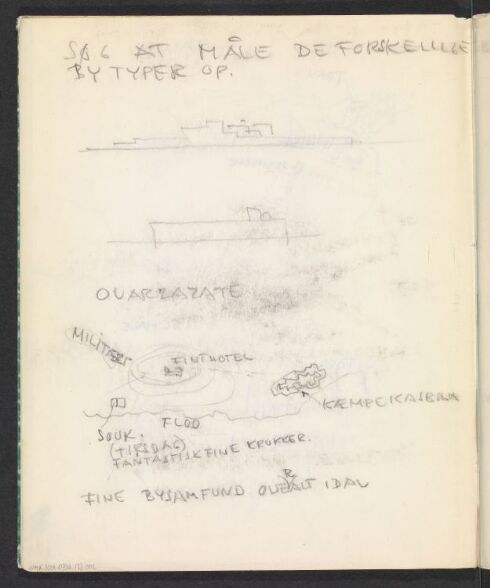 SØG AT MÅLE DE FORSKELLIGE
BY TYPER OP.
OUARZAZATE
MILITÆRT
FINT HOTEL
KÆMPE KASBAH
FLOD
SOUK.
(TIRSDAG)
FANTASTISK FINE KRUKKER.
FINE BYSAMFUND OVERALT I DAL